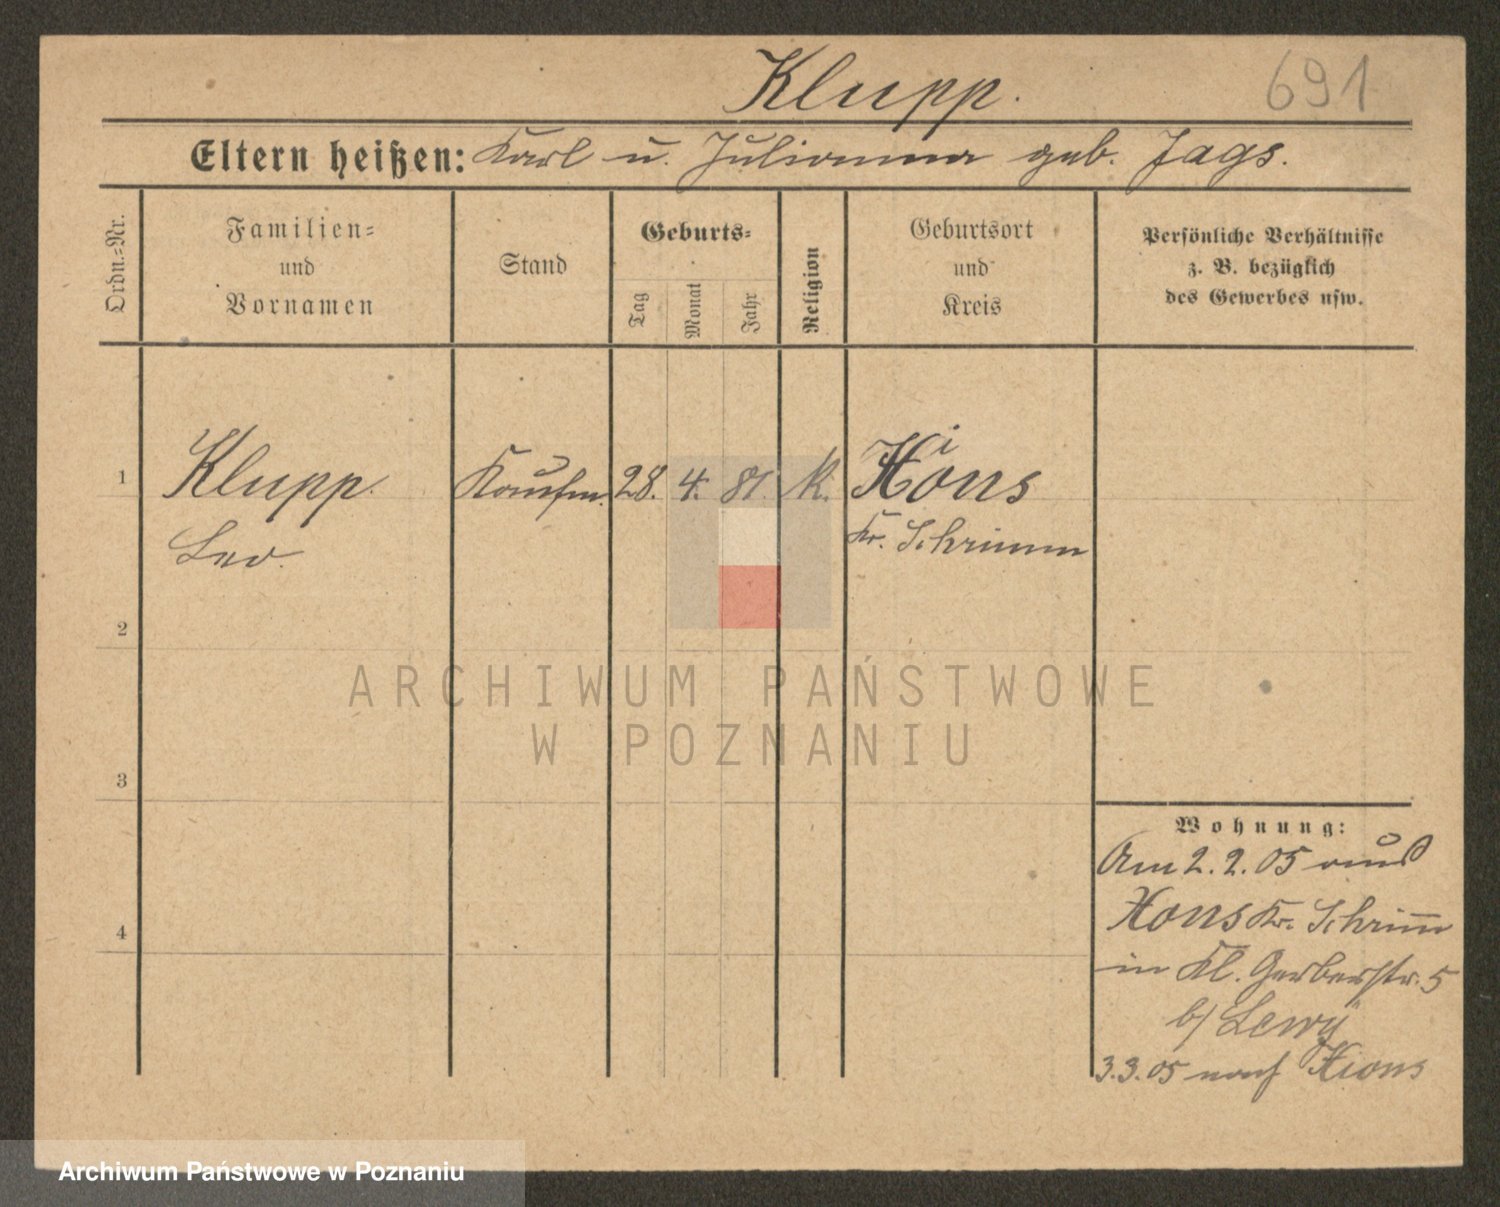 Klupp.
691
Eltern heißen: Karl u. Julianna geb. Jags.
Ordn.=Nr.
Familien=
und
Vornamen
Stand
Geburts=
Tag
Monat
Jahr
Religion
Geburtsort
und
Kreis
Persönliche Verhältnisse
z. B. bezüglich
des Gewerbes usw.
1
Klupp.
Leo.
Kaufm.
28.
4.
81.
k.
Xions
Kr. Schrimm
2
3
4
Wohnung:
Am 2. 2. 05 aus
Xons Kr. Schrimm
in Kl. Gerberstr. 5
b/ Lewy
3.3.05 nach Xions
ARCHIWUM PAŃSTWOWE
W POZNANIU
Archiwum Państwowe w Poznaniu